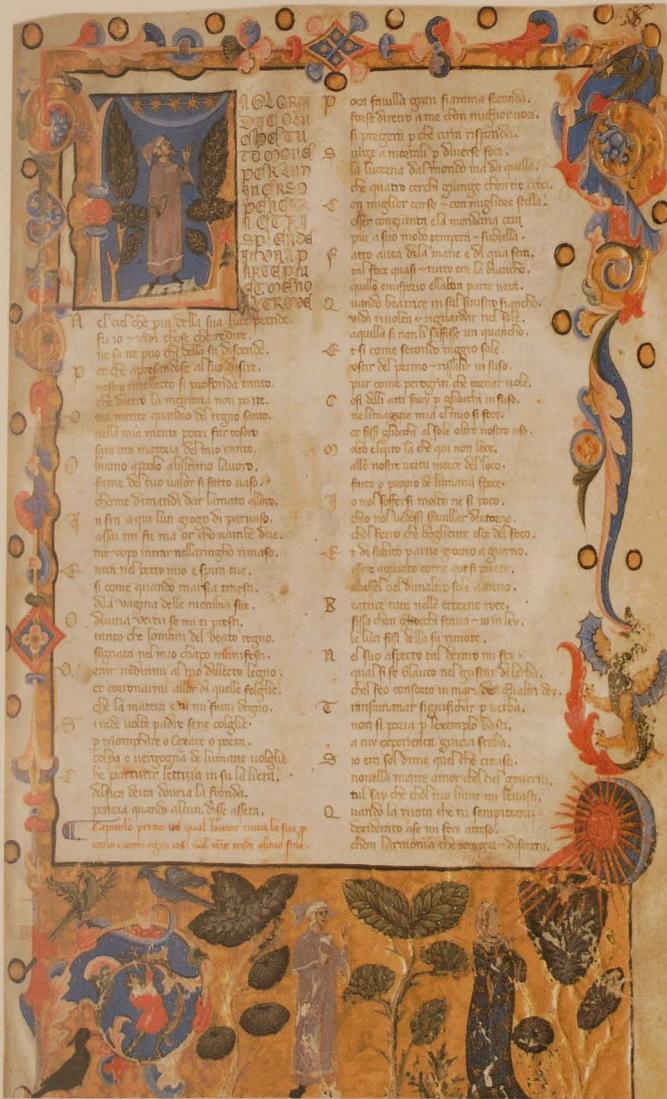 LA GLORIA
DI COLVI
CHE TV
TO MOVE
PER LVN
IVERSO
PENETR
A ET RI
SPLENDE
IN VNA P
ARTE PIV
ET MENO
ALTROVE
N el ciel che piu della sua luce prende.
fu io e vidi chose che redire.
ne sa ne puo chi della su discende.
P er che apresandose al suo disire.
nostro intellecto si profonda tanto.
che dietro la memoria non po ire.
V era mente quandio del regno santo.
nella mia mente potei far tesoro
sara ora materia del mio canto.
O buono appolo alultimo lavoro.
fame del tuo valor si fatto vaso.
chome dimandi dar lamato alloro.
I n fin a qui lun giogo di parnaso.
assai mi fu ma or che nambe due.
me vopo intrar nellaringho rimaso.
E ntra nel petto mio e spira tue.
si come quando marsia traesti.
dela vagina delle membra sue.
O divina vertu se mi ti presti.
tanto che lombra del beato regno.
segnata nel mio chapo manifesti.
V enir vedrami al tuo dilleto legno.
et coronarmi allor di quelle foglie.
che la materia e tu mi farai degno.
S i rade volte padre sene coglie
p triomphare o Cesare o poeta.
colpa e vergogna de lumane voglie
C he parturir letitia in su la lieta.
delfica deita dovria la fronda.
peneia quando alcun disse asseta.
Capitolo primo nel qual lautor
P oca favilla gran fiamma seconda.
forse diretro a me chon miglior voci.
si pregera p che cirra risponda.
S urge a mortali p diverse foci.
la lucerna dal mondo ma da quella.
che quatro cerchi giunge chon tre croci.
C on miglior corso e con migliore stella.
esce congiunta e la mondana cera
piu a suo modo tempera e suggella.
F atto avea dila mane e di qua sera.
tal foce quasi e tutto era la biancho.
quello emisperio ellaltra parte nera
Q uando beatrice in sul sinistro fiancho.
vidi rivolta e riguardar nel sole.
aquilla si non li saffisse un quancho.
E t si come secondo raggio sole.
uscir del primo e rissalir in suso.
pur come peregrin che tornar vole.
C osi delli atti suoy p gliocchi in fuso.
ne limagine mia el mio si fece.
et fissi gliocchi al sole oltre nostro uso.
M olto elicito la che qui non lece.
alle nostre vertu merce del loco.
fatto p propio de lumana spece.
I o nol soffersi molto ne si poco.
chio nol vedessi sfavillar dintorno.
chol ferro che bogliente esce del foco.
E t di subito parve giorno a giorno.
essere agiunto come
B eatrice tuta nelle etterne rote.
fissa chon gliocchi stava e io in ley.
le luci fissi
N el suo aspecto tal dentro mi fey.
qual si fe glauco nel gustar di lerba.
chel feo consorto in mar. de glialtri dey.
T ransumanar significhar p verba.
non si poria p lexemplo basti.
a cuy experienca gratia serba.
S io era sol dime quel che creasti.
novella mente amor che ciel governi.
tul say che chol tuo lume mi levasti.
Q uando la ruota che tu sempiterni.
desiderato ase mi fece atteso.
chon larmonia che temperi e discerni.